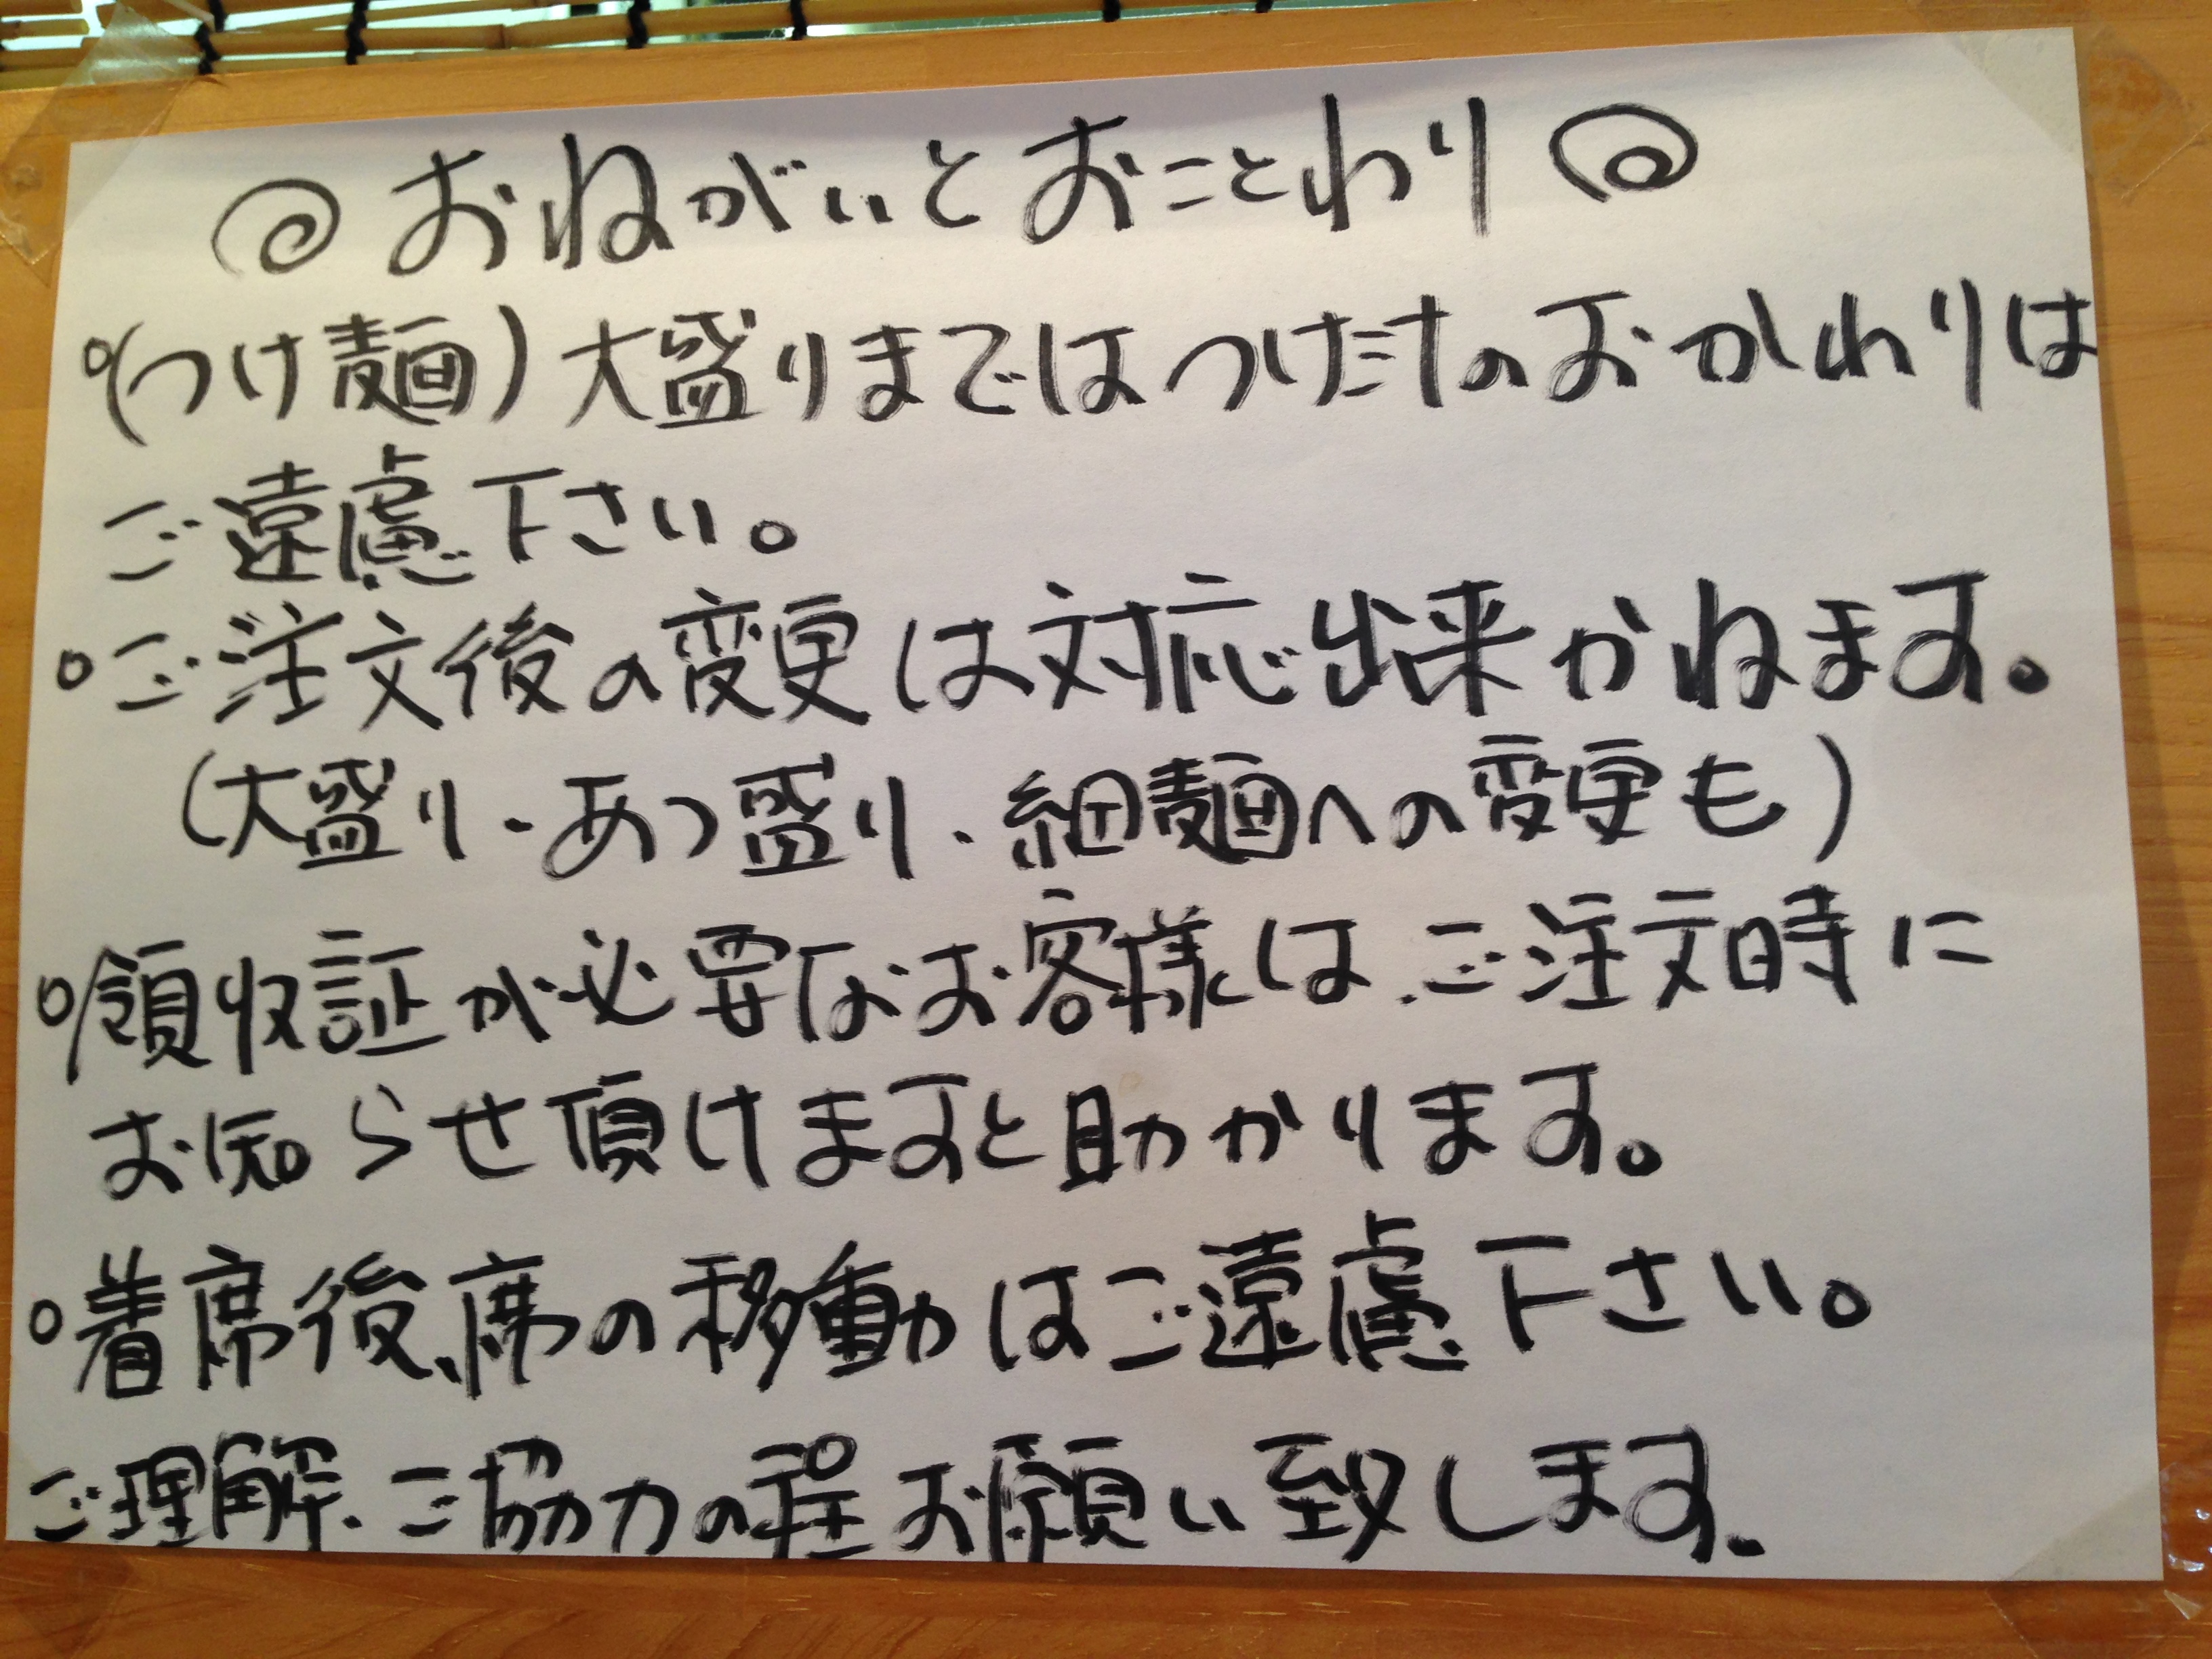 おねがいとおことわり
◦(つけ麺)大盛りまではつけだけのおかわりは
ご遠慮下さい。
◦ご注文後の変更は対応出来かねます。
(大盛り・あつ盛り・細麺への変更も)
◦領収証が必要なお客様は、ご注文時に
お知らせ頂けますと助かります。
◦着席後、席の移動はご遠慮下さい。
ご理解、ご協力の程お願い致します。